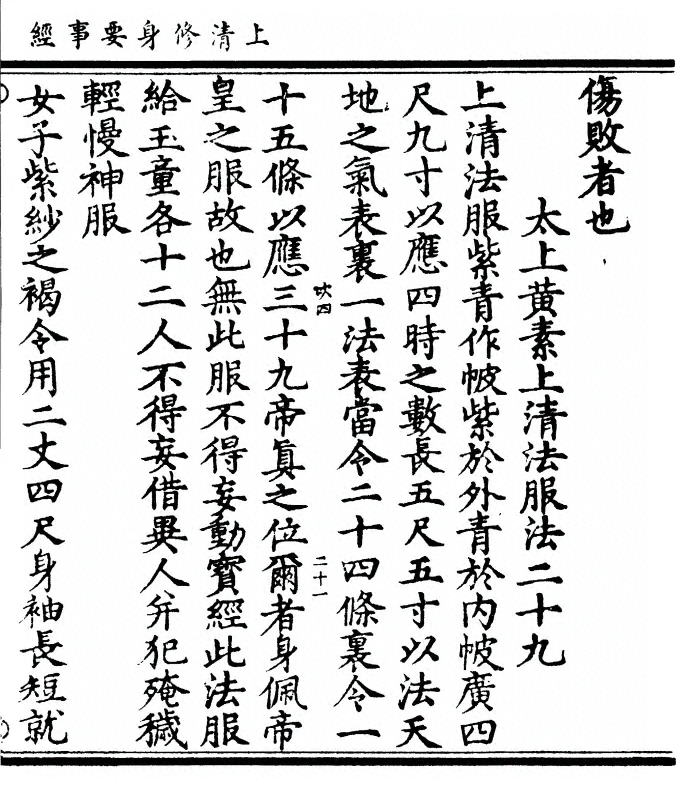 上清修身要事經
傷敗者也
太上黄素上清法服法二十九
上清法服紫青作帔紫於外青於内帔廣四
尺九寸以應四時之數長五尺五寸以法天
地之氣表裏一法表當令二十四條裏令一
吠四
二十一
十五條以應三十九帝真之位爾者身佩帝
皇之服故也無此服不得妄動寶經此法服
給玉童各十二人不得妄借異人并犯殗穢
輕慢神服
女子紫紗之褐令用二丈四尺身袖長短就